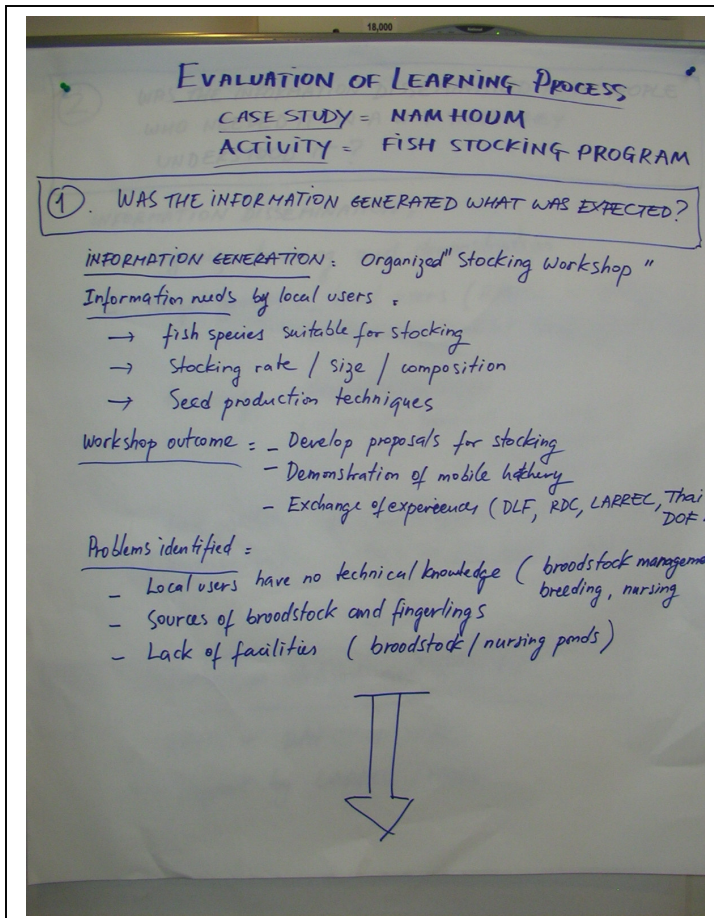 18,000
EVALUATION OF LEARNING PROCESS
CASE STUDY = NAM HOUM
ACTIVITY = FISH STOCKING PROGRAM
1. WAS THE INFORMATION GENERATED WHAT WAS EXPECTED?
INFORMATION GENERATION: Organized "Stocking Workshop"
Information needs by local users:
→ fish species suitable for stocking
→ Stocking rate / size / composition
→ Seed production techniques
Workshop outcome = - Develop proposals for stocking
- Demonstration of mobile hatchery
- Exchange of experiences (DLF, RDC, LARREC, Thai
DOF
Problems identified =
- Local users have no technical knowledge ( broodstock manageme
breeding, nursing
- Sources of broodstock and fingerlings
- Lack of facilities ( broodstock / nursing ponds )